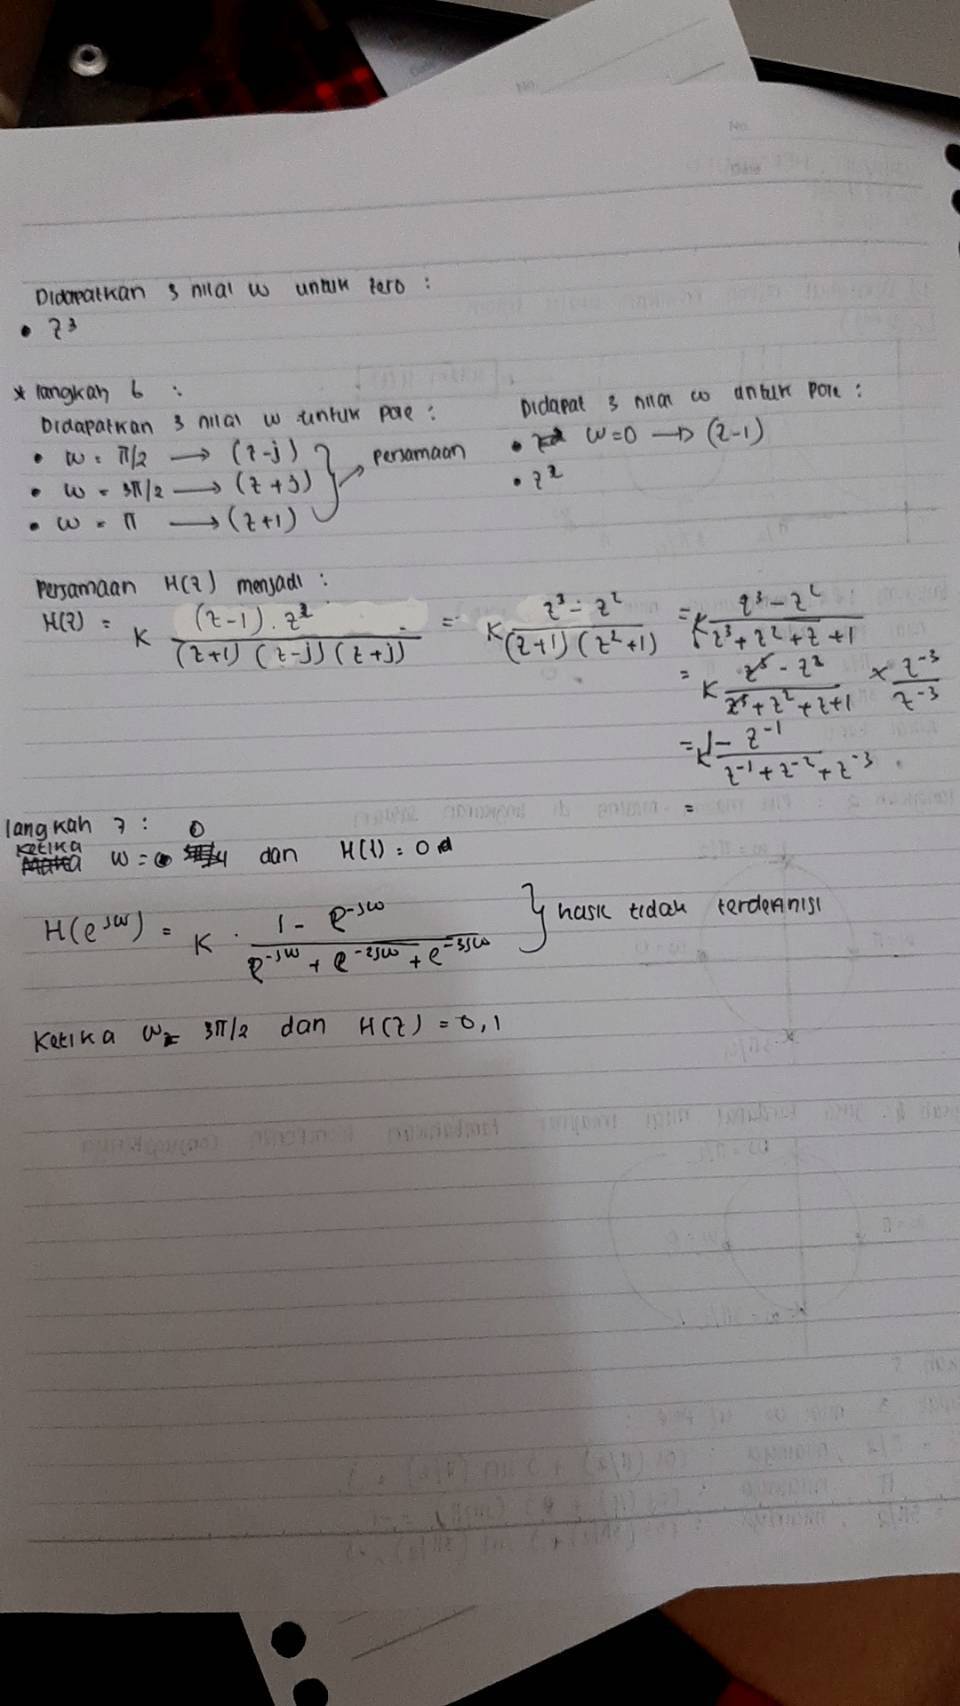 No.
Date
Didapatkan 3 nilai w untuk zero :
• z³
* langkah 6 :
Didapatkan 3 nilai w untuk pole :
• w = π/2 → (z-j)
• w = 3π/2 → (z+j)
• w = π → (z+1)
} → persamaan
Didapat 3 nilai w untuk pole :
• w=0 → (z-1)
• z²
Persamaan H(z) menjadi :
H(z) = K (z-1) . z² / (z+1) (z-j) (z+j) = K z³ - z² / (z+1) (z²+1) = K z³ - z² / z³ + z² + z + 1
= K z³ - z² / z³ + z² + z + 1 × z⁻³ / z⁻³
= K 1 - z⁻¹ / z⁻¹ + z⁻² + z⁻³
=
langkah 7 :
Ketika w = 0 dan H(1) = 0
H(e^jw) = K . 1 - e^-jw / e^-jw + e^-2jw + e^-3jw } hasil tidak terdefinisi
Ketika w = 3π/2 dan H(z) = 0,1